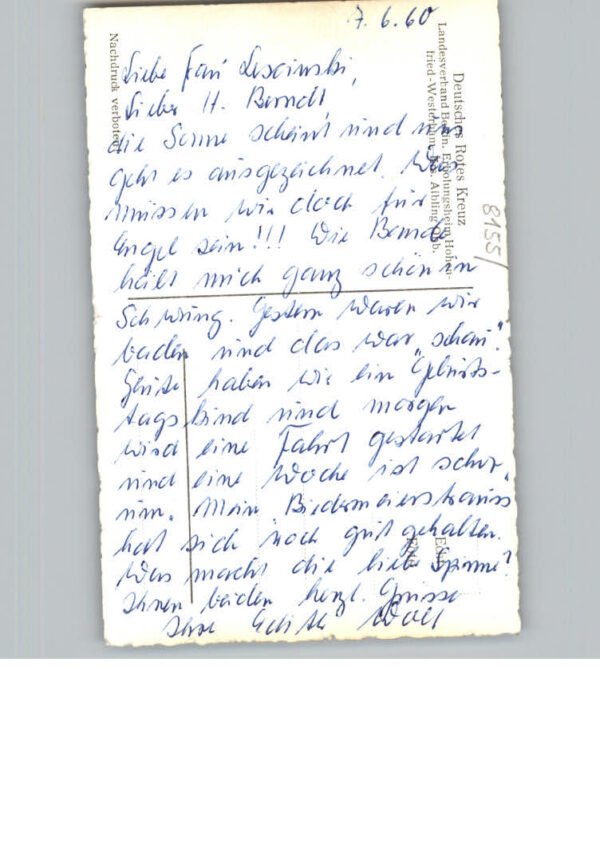 7.6.60
Liebe Frau Lescinski,
Lieber H. Berndt
die Sonne scheint und uns
geht es ausgezeichnet. Was
müssen wir doch für
Engel sein!!! Die Bande
hält mich ganz schön in
Schwung. Gestern waren wir
baden und das war „schau".
Heute haben wir ein Geburts-
tagskind und morgen
wird eine Fahrt gestartet
und eine Woche ist schon
um. Mein Biedermeierstrauss
hat sich noch gut gehalten.
Was macht die liebe Spinne?
Ihnen beiden herzl. Grüsse
Ihre Edith
Deutsches Rotes Kreuz
Landesverband Berlin. Erholungsheim Hohen-
fried-Westerham, Bad Aibling Obb.
Nachdruck verboten
8155/